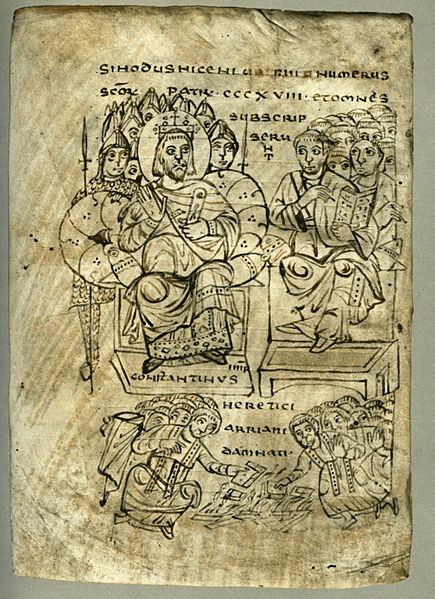 SINODUS NICENI NUMERUS
SCOR̄ PATR· CCCXVIII· ET OMNES
SUBSCRIP
SERU
NT
IMP
CONSTANTINUS
HERETICI
ARRIANI
DAMNATI·